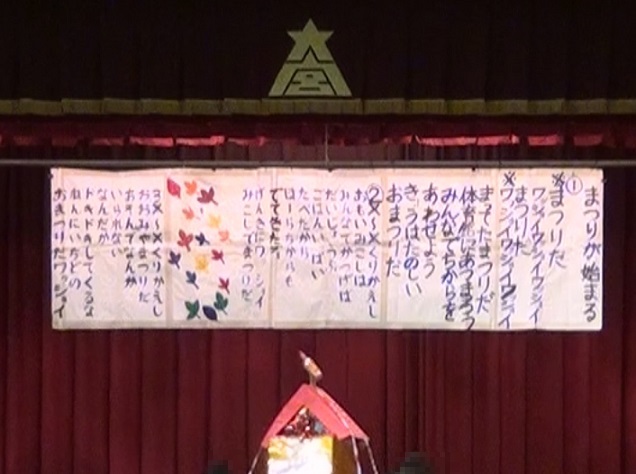 大宮
まつりが始まる
①
※まつりだ
ワッショイワッショイ
まつりだ
※ワッショイワッショイ
まってたまつりだ
体育館にあつまろう
みんなでちからを
あわせよう
きょうはたのしい
おまつりだ
②※～※くりかえし
おもいみこしは
みんなでかつげば
だいじょうぶ
ごはんいっぱい
たべたから
ほーらちからも
でてきたぞ
げんきにワッショイ
みこしでまつりだ
③※～※くりかえし
おおみやまつりだ
おすんでなんか
いられない
なんだか
ドキドキしてくるな
ねんにいちどの
おまつりだワッショイ